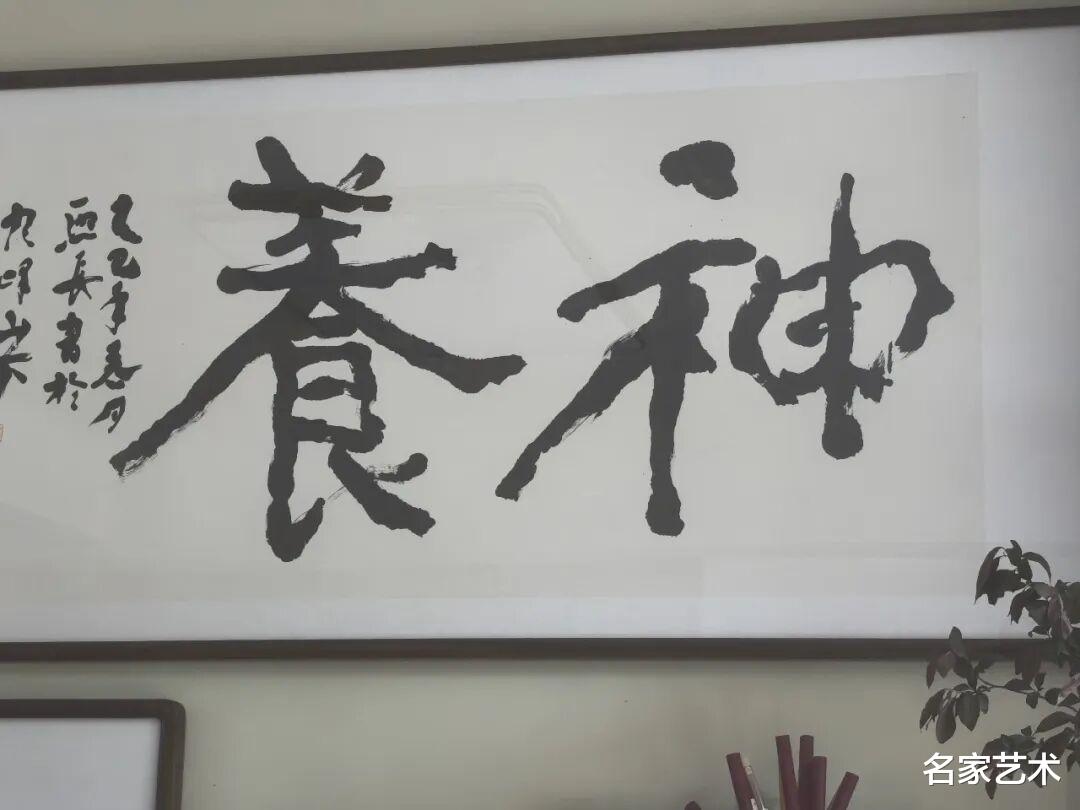 神養
乙巳年春月
長書於
名家艺术